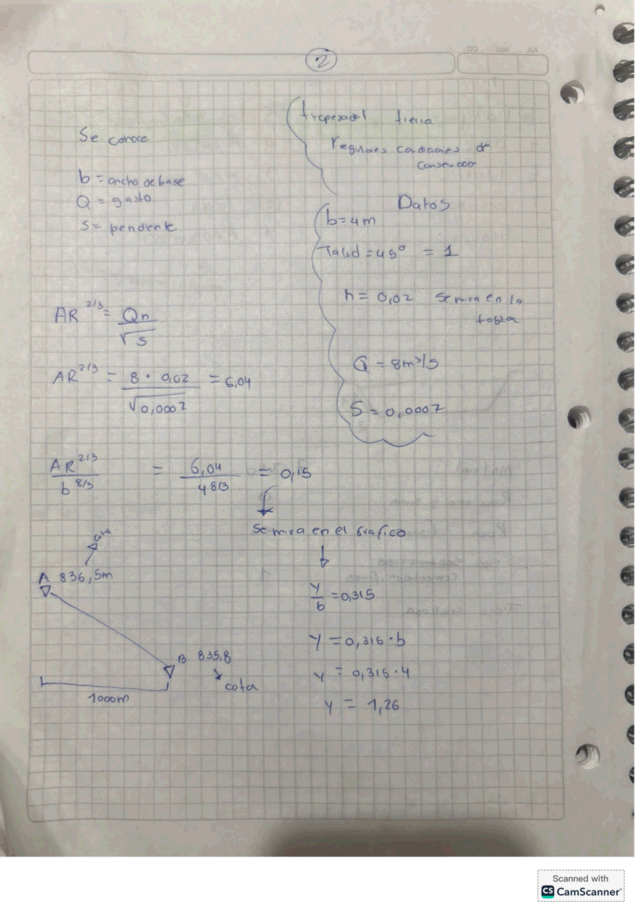 2
Se conoce
b = ancho de base
Q = gasto
S = pendente
trapezoidal tierra
regulares condiciones de
Datos
b = 4m
Talud = 45° = 1
n = 0,02 Se mira en la
tabla
Q = 8m³/s
S = 0,0007
AR^2/3 = Qn / √S
AR^2/3 = 8 · 0,02 / √0,0007 = 6,04
AR^2/3 / b^8/3 = 6,04 / 4^8/3 = 0,15
Se mira en el grafico
y/b = 0,315
y = 0,315 · b
y = 0,315 · 4
y = 1,26
A 836,5m
B 835,8
cota
1000m
Scanned with
CS CamScanner